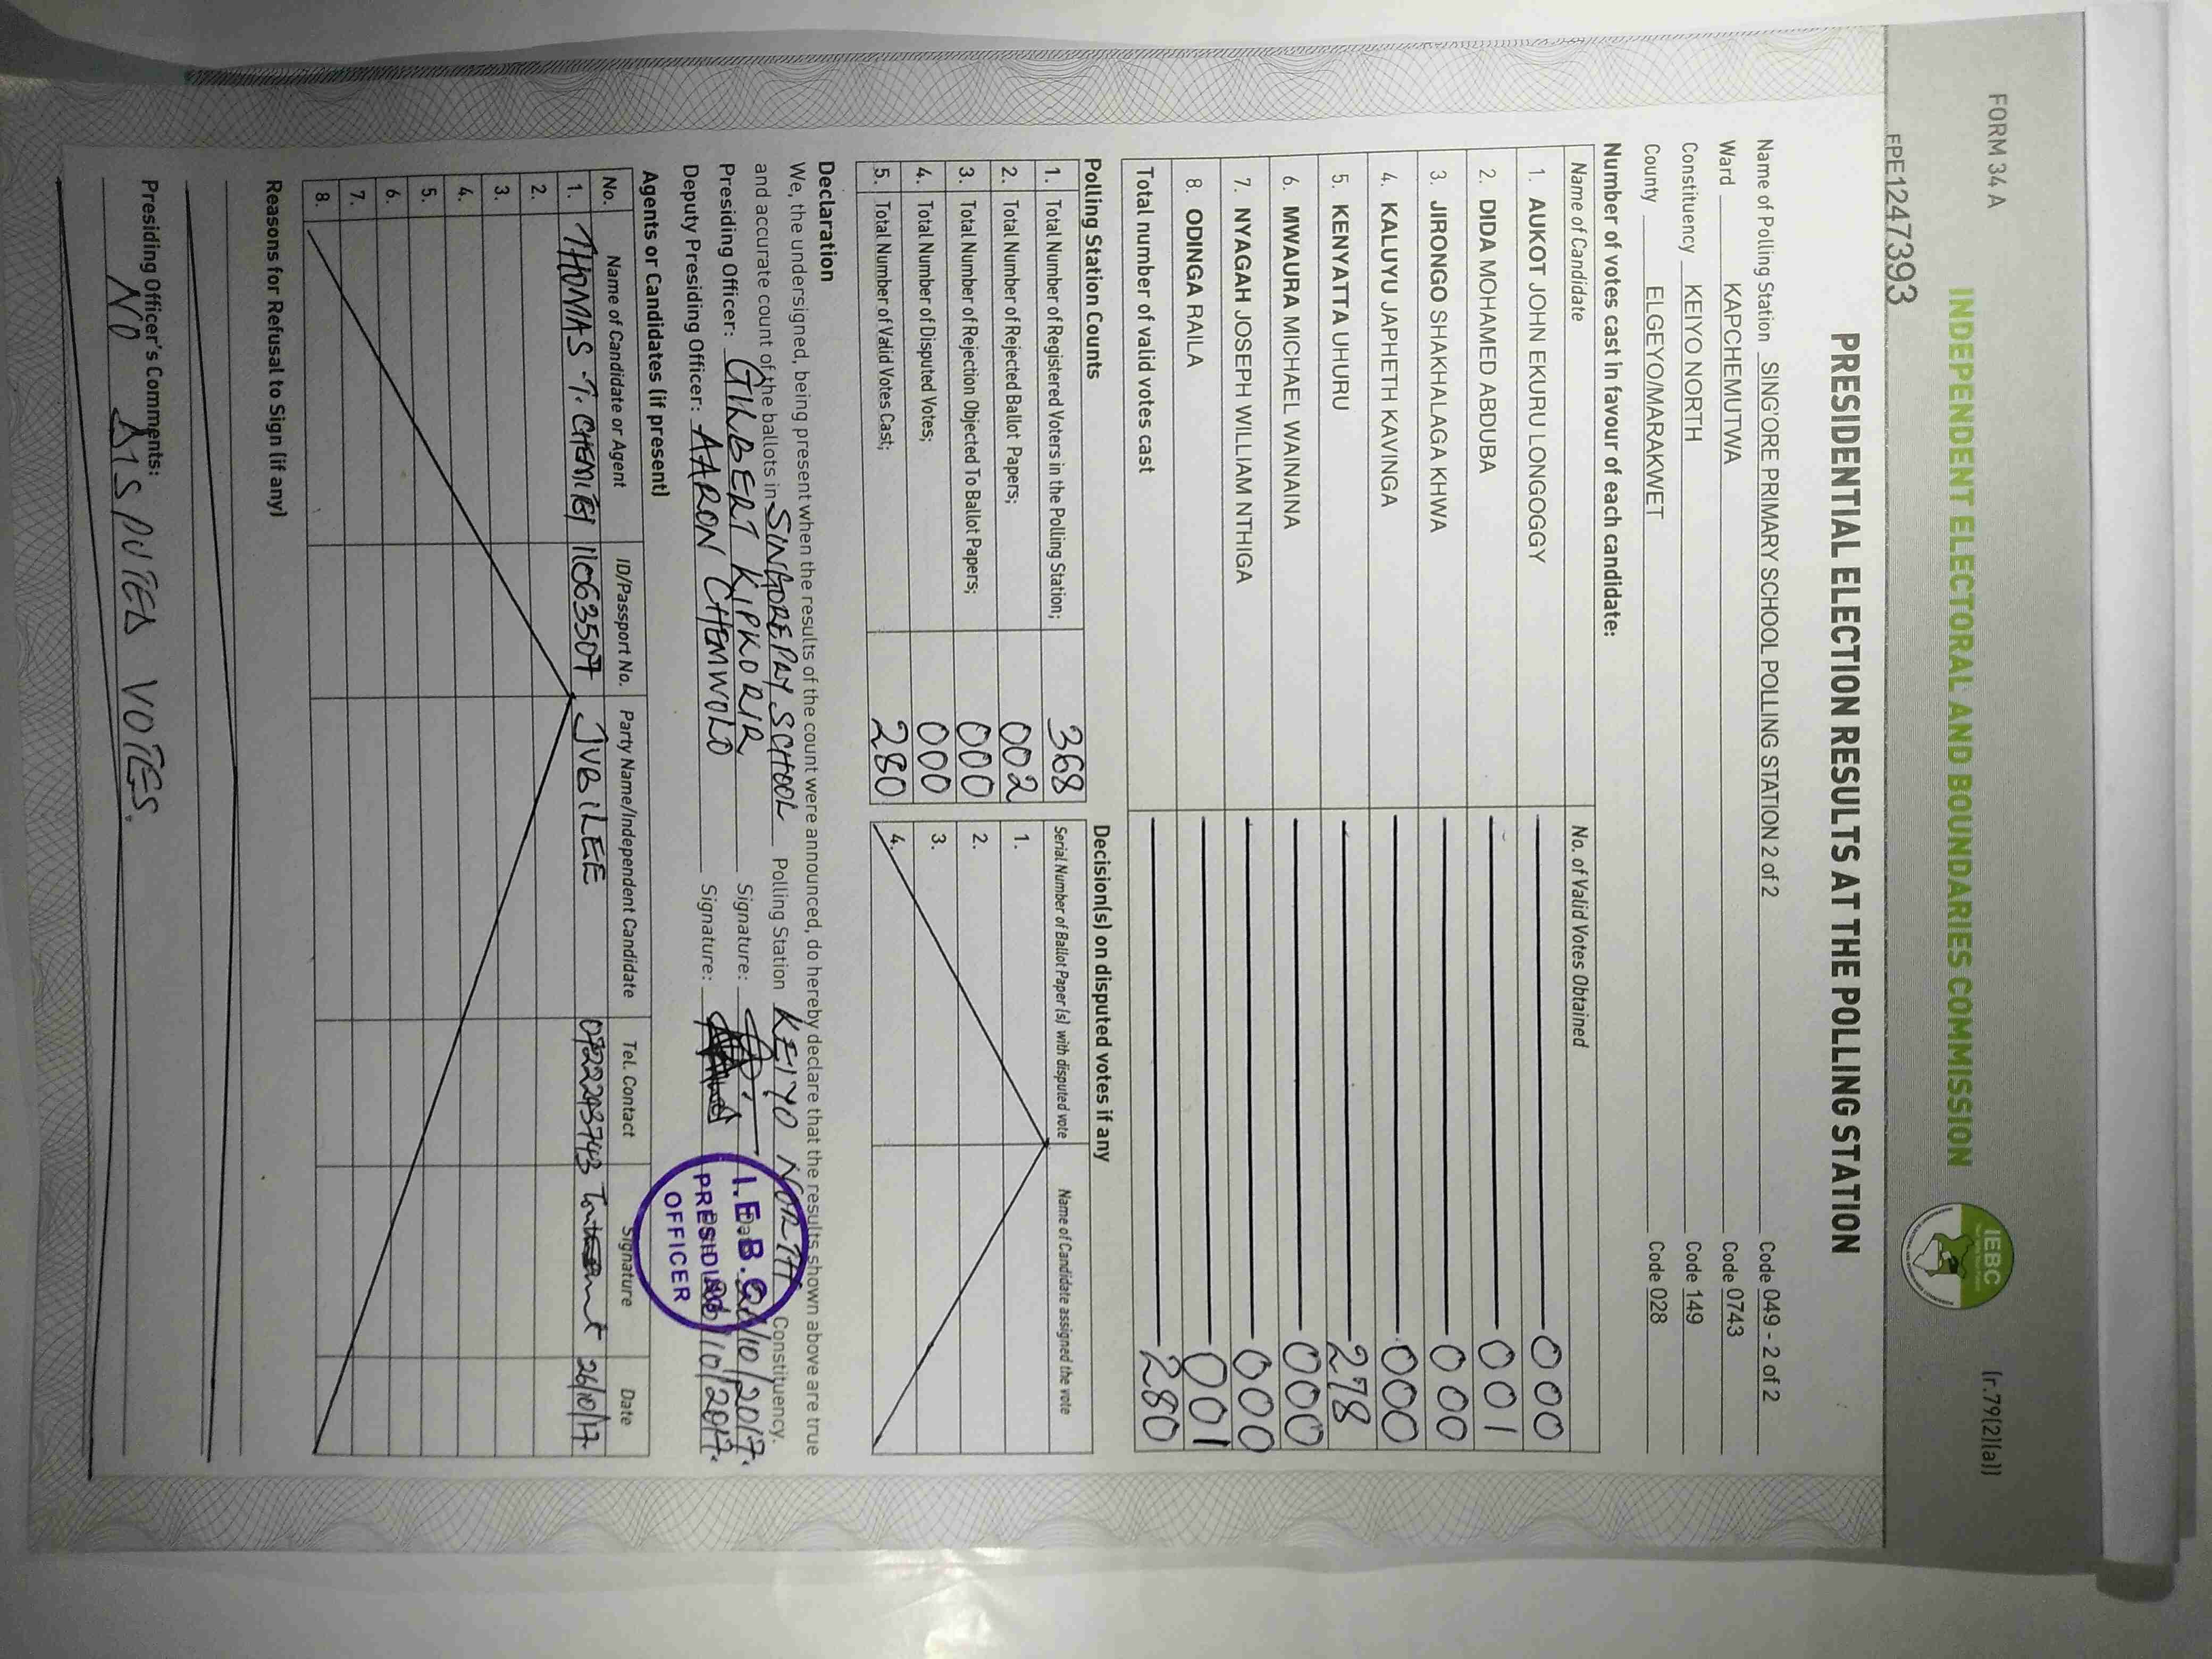 FORM 34 A
(r.79(2)(a))
INDEPENDENT ELECTORAL AND BOUNDARIES COMMISSION
IEBC
EPE1247393
PRESIDENTIAL ELECTION RESULTS AT THE POLLING STATION
Name of Polling Station SING'ORE PRIMARY SCHOOL POLLING STATION 2 of 2 Code 049 - 2 of 2
Ward KAPCHEMUTWA Code 0743
Constituency KEIYO NORTH Code 149
County ELGEYO/MARAKWET Code 028
Number of votes cast in favour of each candidate:
Name of Candidate No. of Valid Votes Obtained
1. AUKOT JOHN EKURU LONGOGGY 000
2. DIDA MOHAMED ABDUBA 001
3. JIRONGO SHAKHALAGA KHWA 000
4. KALUYU JAPHETH KAVINGA 000
5. KENYATTA UHURU 278
6. MWAURA MICHAEL WAINAINA 000
7. NYAGAH JOSEPH WILLIAM NTHIGA 000
8. ODINGA RAILA 001
Total number of valid votes cast 280
Polling Station Counts
1. Total Number of Registered Voters in the Polling Station; 368
2. Total Number of Rejected Ballot Papers; 002
3. Total Number of Rejection Objected To Ballot Papers; 000
4. Total Number of Disputed Votes; 000
5. Total Number of Valid Votes Cast; 280
Decision(s) on disputed votes if any
Serial Number of Ballot Paper(s) with disputed vote Name of Candidate assigned the vote
1.
2.
3.
4.
Declaration
We, the undersigned, being present when the results of the count were announced, do hereby declare that the results shown above are true
and accurate count of the ballots in SINGORE PRY SCHOOL Polling Station KEIYO NORTH Constituency.
Presiding Officer: GILBERT KIPKORIR Signature: Date 26/10/2017.
Deputy Presiding Officer: AARON CHEMWOLO Signature: 26/10/2017.
I.E.B.C.
PRESIDING
OFFICER
Agents or Candidates (if present)
No. Name of Candidate or Agent ID/Passport No. Party Name/Independent Candidate Tel. Contact Signature Date
1. THOMAS T. 11063507 JUBILEE 0722243743 26/10/17
2.
3.
4.
5.
6.
7.
8.
Reasons for Refusal to Sign (if any)
Presiding Officer's Comments:
NO DISPUTED VOTES.